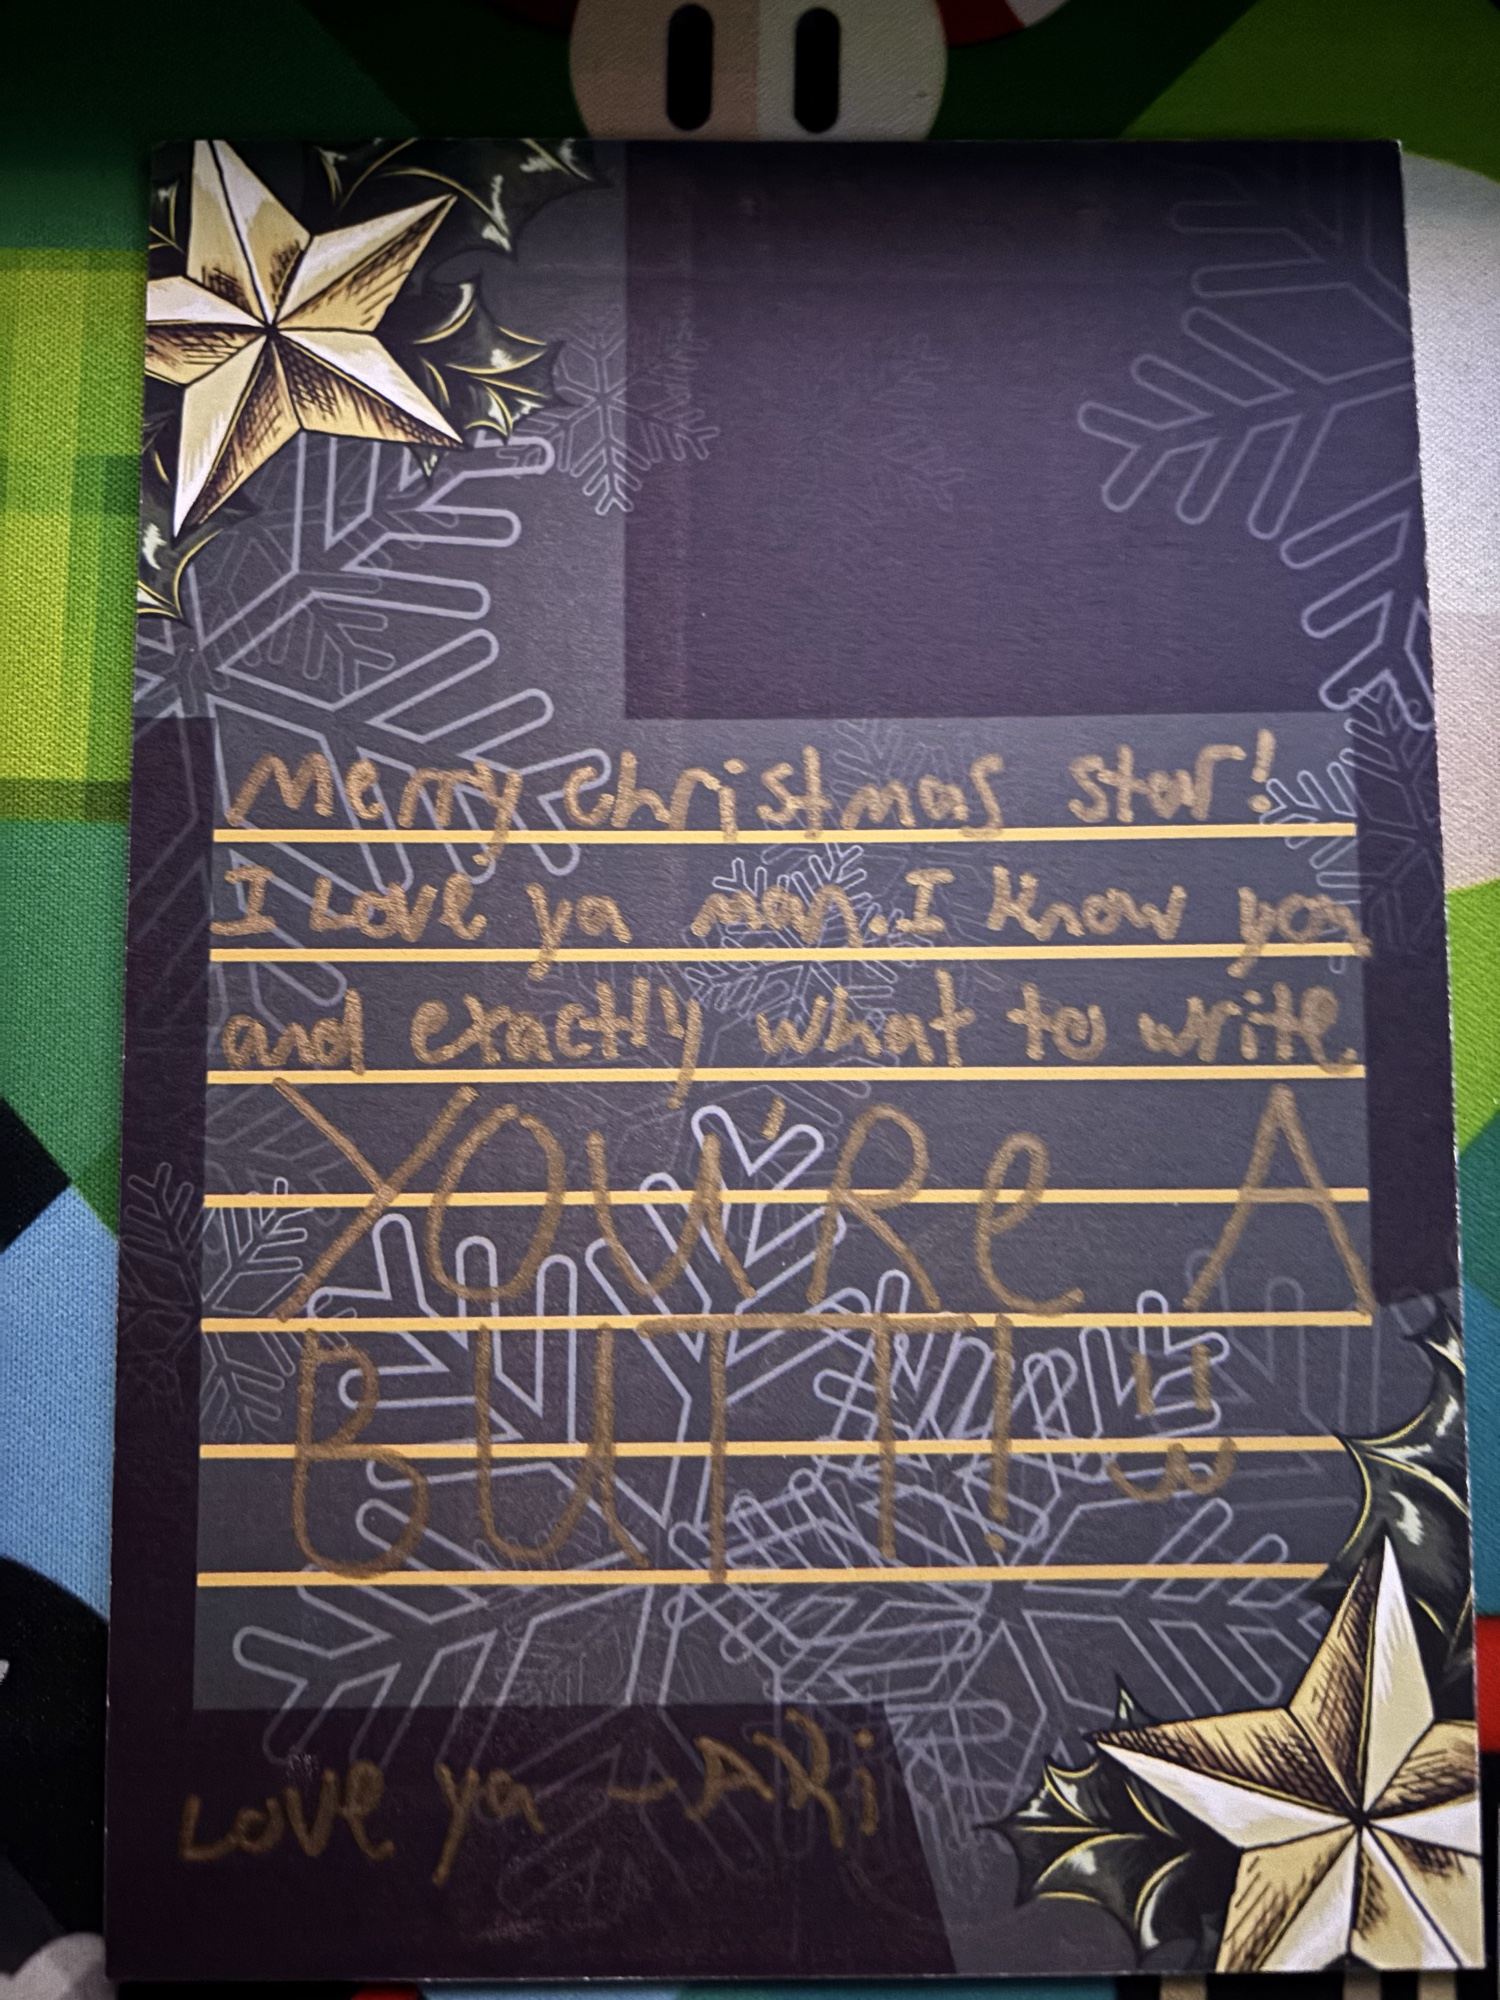 Merry christmas star!
I Love ya man. I know you
and exactly what to write
YOU'Re A
BUTT! ü ω
Love ya - AKi